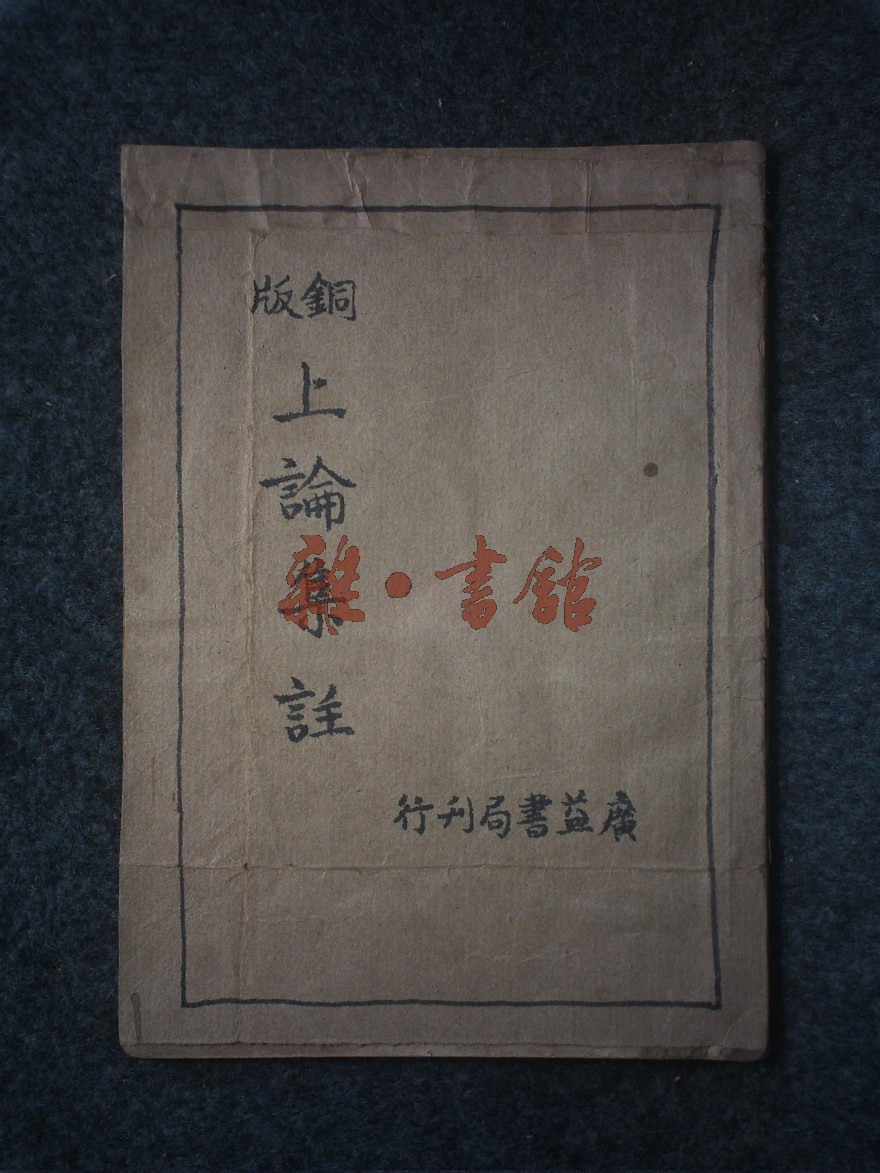 銅版
上論集註
廣益書局刊行
雜·書館